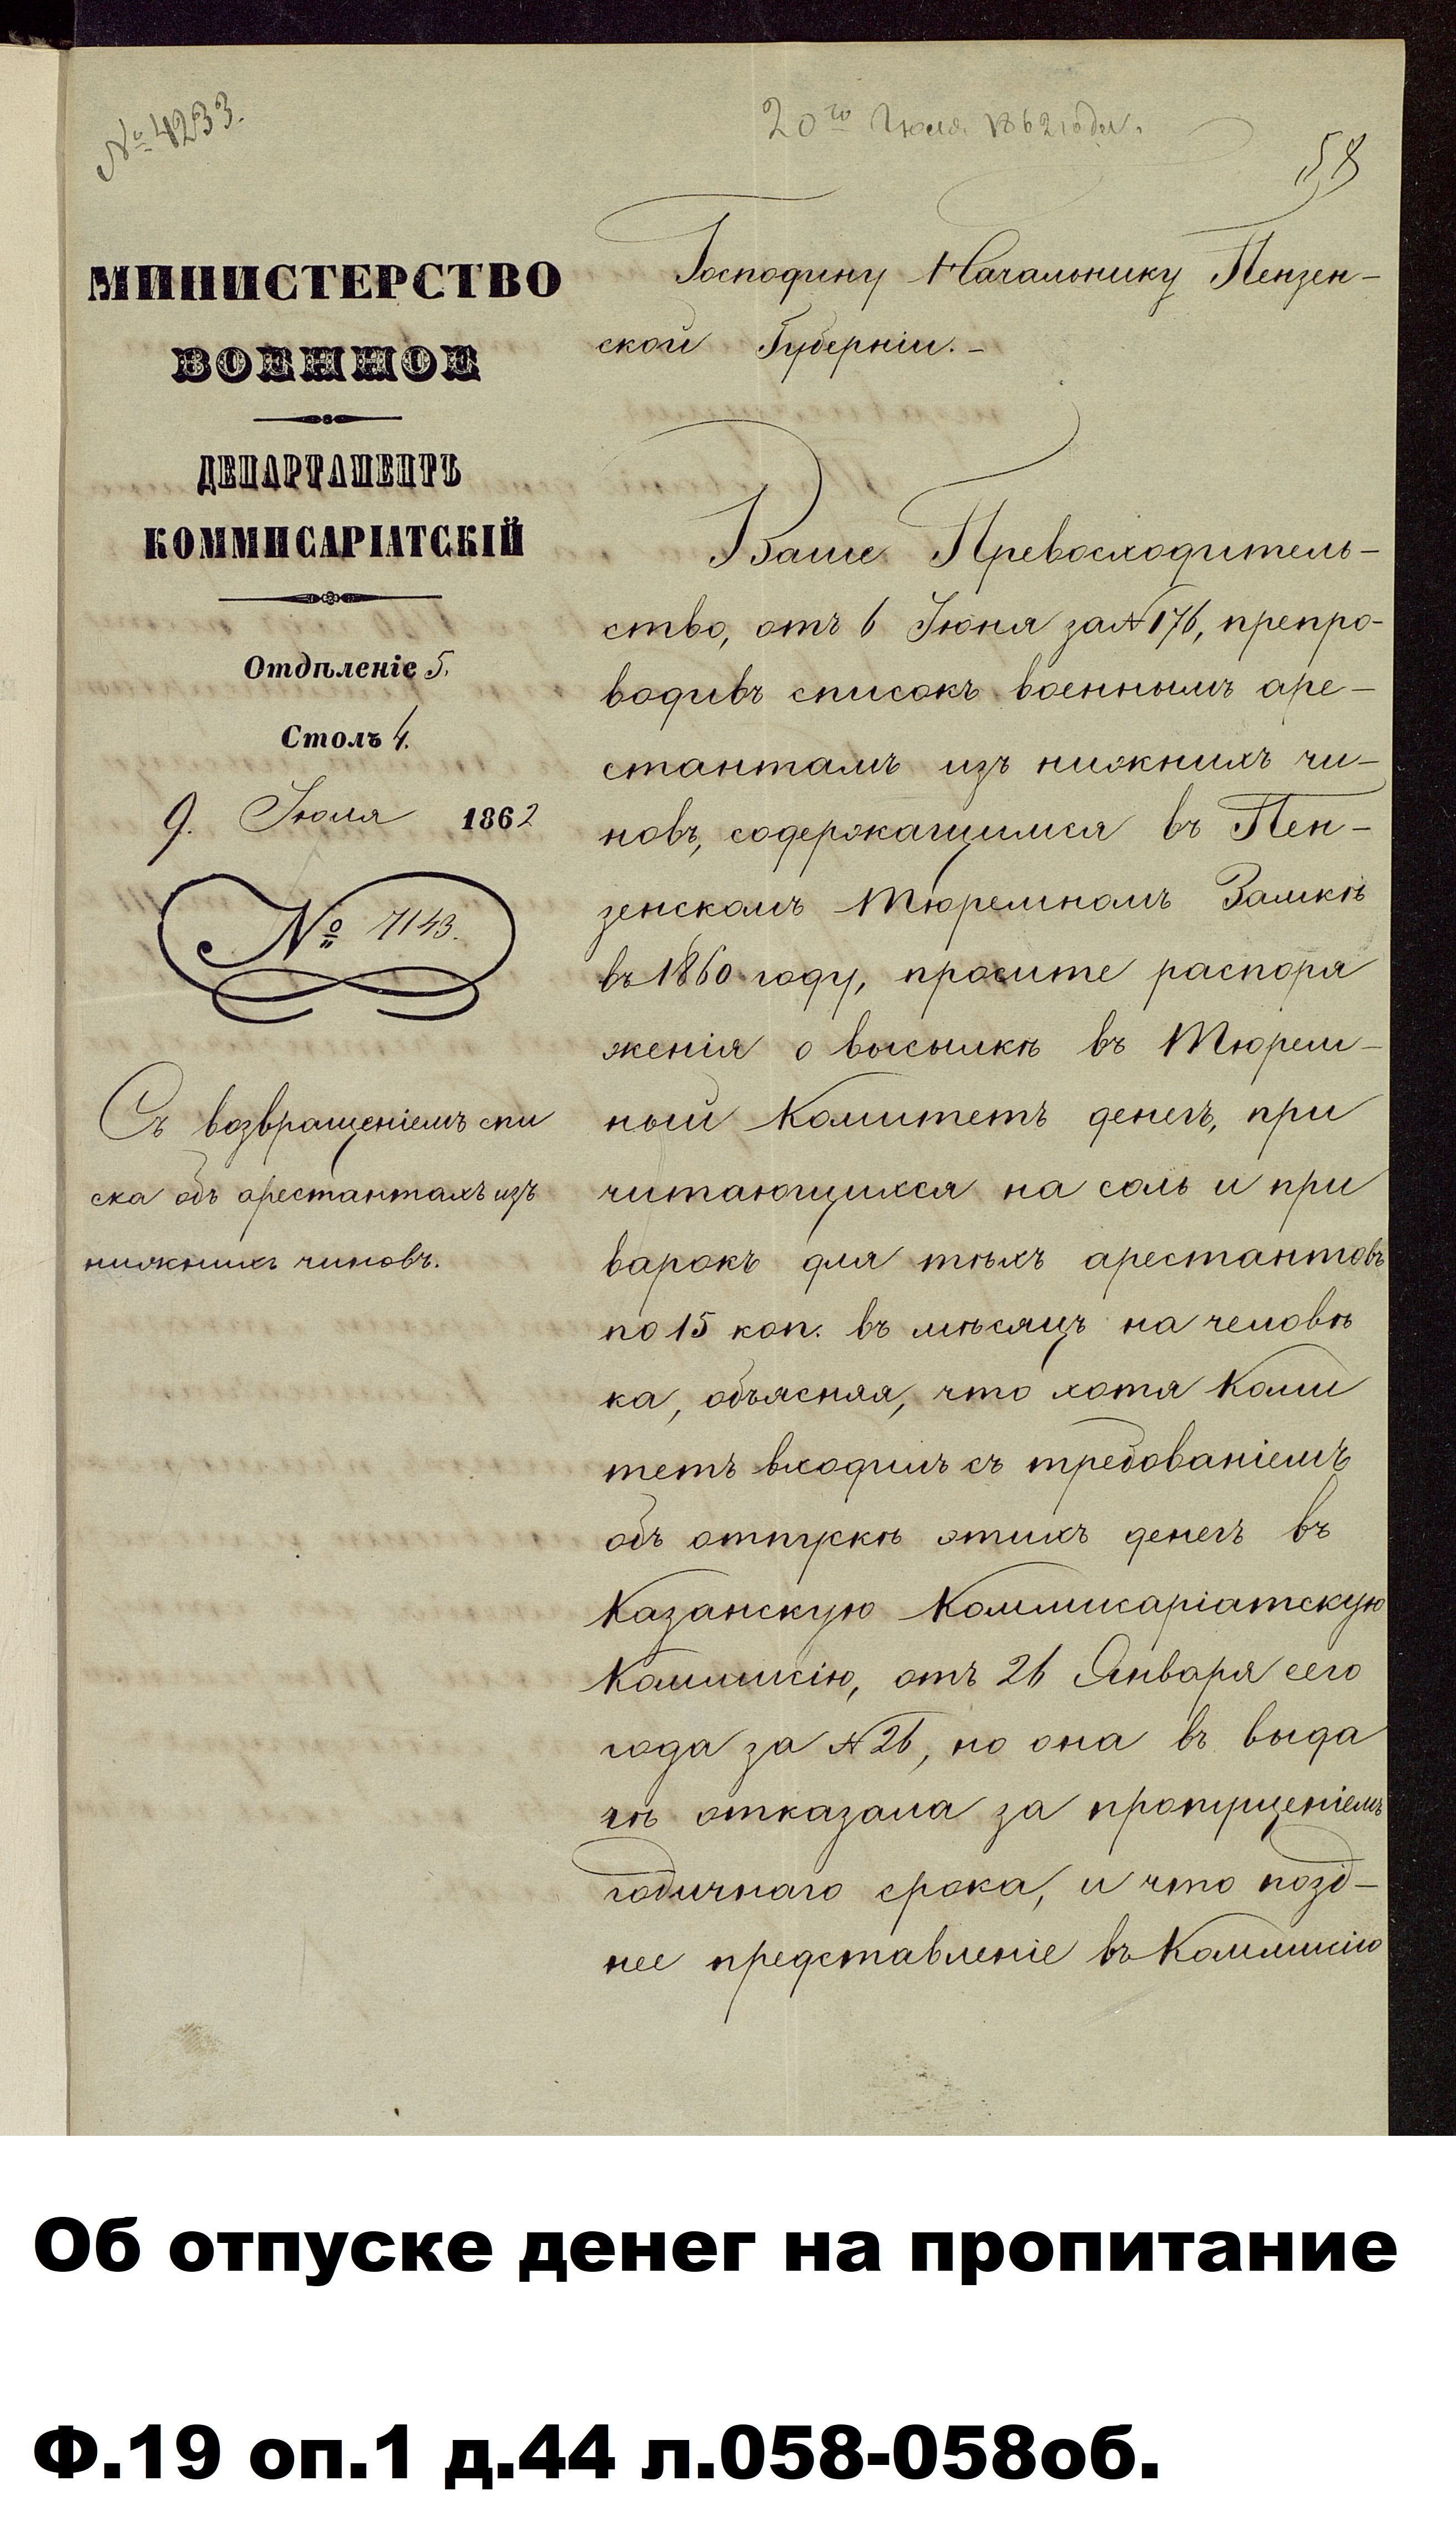 № 4233.
20го Июля 1862 года.
58
МИНИСТЕРСТВО
ВОЕННОЕ
ДЕПАРТАМЕНТЪ
КОММИСАРІАТСКІЙ
Отдѣленіе 5.
Столъ 4.
9. Іюля 1862
№ 7143.
Съ возвращеніемъ спи
ска объ арестантахъ изъ
нижнихъ чиновъ.
Господину Начальнику Пензен-
ской Губерніи.-
Ваше Превосходитель-
ство, отъ 6 Іюня за № 176, препро-
водивъ списокъ военнымъ аре-
стантамъ изъ нижнихъ чи-
новъ, содержащимся въ Пен-
зенскомъ Тюремномъ Замкѣ
въ 1860 году, просите распоря
женія о высылкѣ въ Тюрем-
ный Комитетъ денегъ, при
читающихся на соль и при
варокъ для тѣхъ арестантовъ
по 15 коп. въ мѣсяцъ на человѣ
ка, объясняя, что хотя Коми
тетъ входилъ съ требованіемъ
объ отпускѣ этихъ денегъ въ
Казанскую Коммисаріатскую
Коммисію, отъ 26 Января сего
года за № 26, но она въ выда
чѣ отказала за пропущеніемъ
годичнаго срока, и что позд-
нее представленіе въ Коммисію
Об отпуске денег на пропитание
Ф.19 оп.1 д.44 л.058-058об.